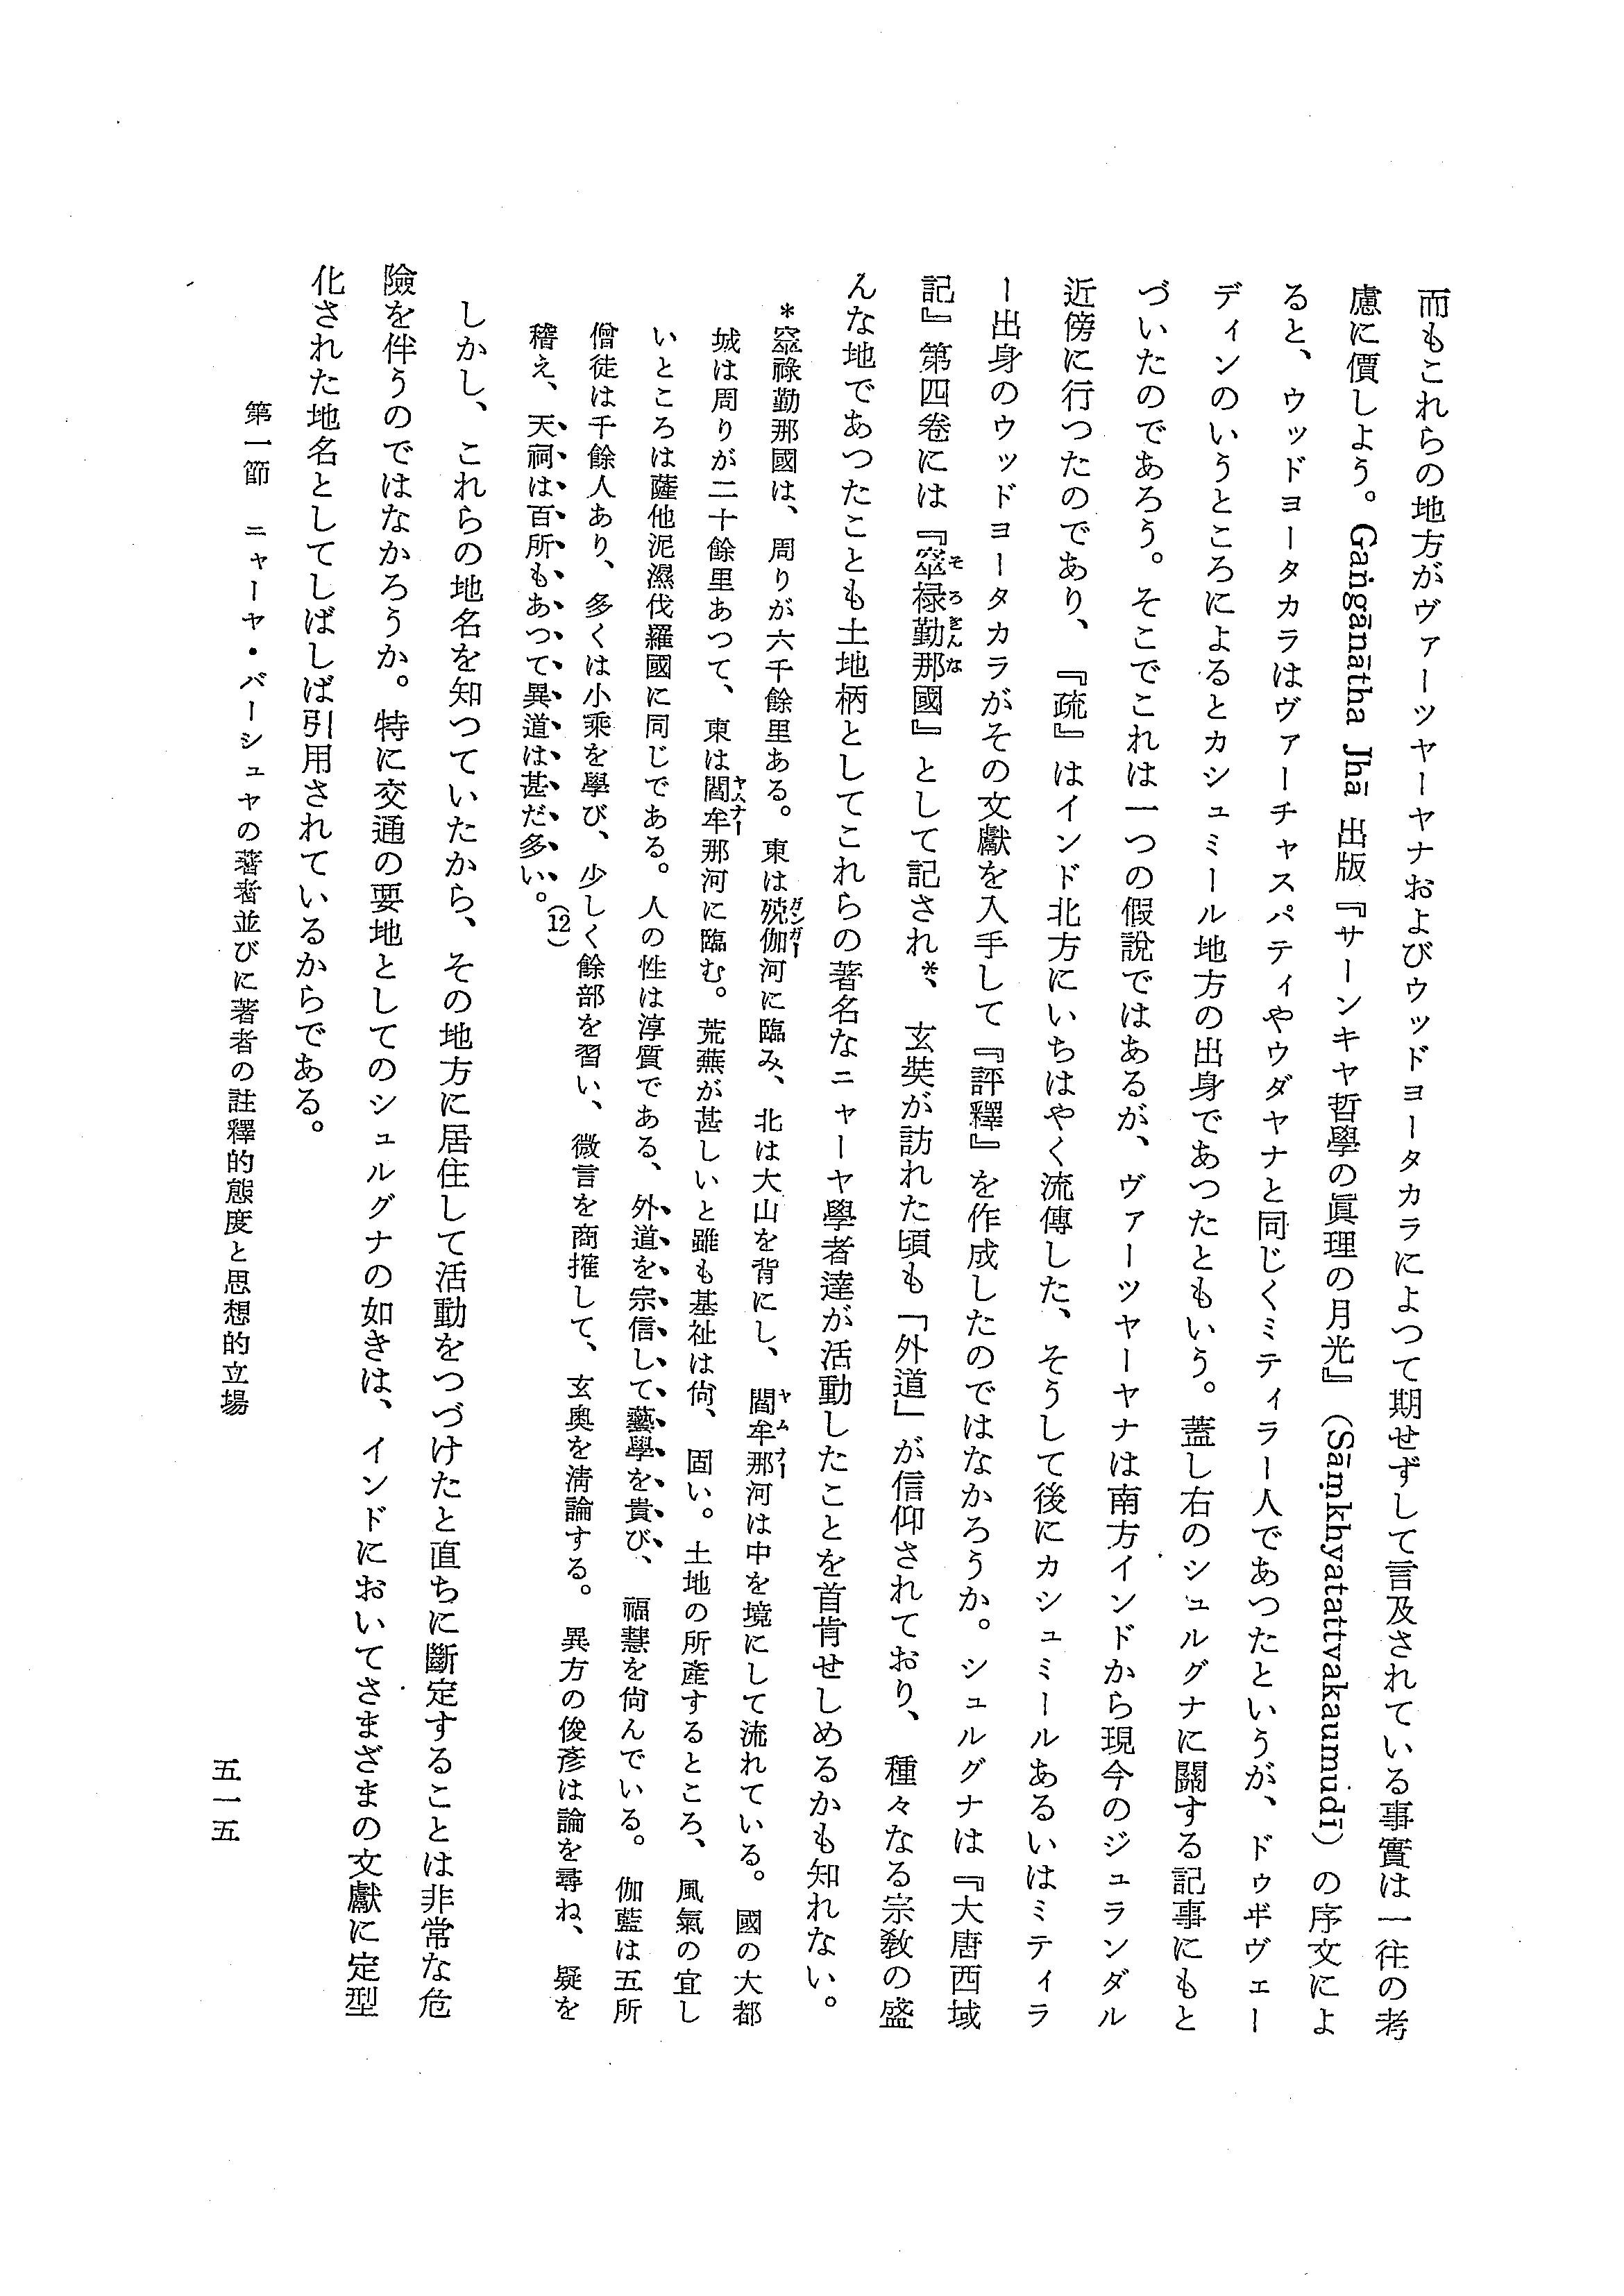 而もこれらの地方がヴァーツヤーヤナおよびウッドヨータカラによつて期せずして言及されている事實は一往の考
慮に價しよう。Gaṅgānātha Jhā 出版『サーンキャ哲學の眞理の月光』(Sāṃkhyatattvakaumudī)の序文によ
ると、ウッドヨータカラはヴァーチャスパティやウダヤナと同じくミティラー人であつたというが、ドゥヸヴェー
ディンのいうところによるとカシュミール地方の出身であつたともいう。蓋し右のシュルグナに關する記事にもと
づいたのであろう。そこでこれは一つの假說ではあるが、ヴァーツヤーヤナは南方インドから現今のジュランダル
近傍に行つたのであり、『疏』はインド北方にいちはやく流傳した、そうして後にカシュミールあるいはミティラ
ー出身のウッドヨータカラがその文獻を入手して『評釋』を作成したのではなかろうか。シュルグナは『大唐西域
記』第四卷には『窣禄勤那國』として記され*、玄奘が訪れた頃も「外道」が信仰されており、種々なる宗敎の盛
んな地であつたことも土地柄としてこれらの著名なニャーヤ學者達が活動したことを首肯せしめるかも知れない。
*窣祿勤那國は、周りが六千餘里ある。東は殑伽河に臨み、北は大山を背にし、閻牟那河は中を境にして流れている。國の大都
城は周りが二十餘里あつて、東は閻牟那河に臨む。荒蕪が甚しいと雖も基祉は尙、固い。土地の所產するところ、風氣の宜し
いところは薩他泥濕伐羅國に同じである。人の性は淳質である、外道を宗信して藝學を貴び、福慧を尙んでいる。伽藍は五所
僧徒は千餘人あり、多くは小乘を學び、少しく餘部を習い、微言を商搉して、玄奧を淸論する。異方の俊彥は論を尋ね、疑を
稽え、天祠は百所もあつて異道は甚だ多い。(12)
しかし、これらの地名を知つていたから、その地方に居住して活動をつづけたと直ちに斷定することは非常な危
險を伴うのではなかろうか。特に交通の要地としてのシュルグナの如きは、インドにおいてさまざまの文獻に定型
化された地名としてしばしば引用されているからである。
第一節　ニャーヤ・バーシュヤの著者並びに著者の註釋的態度と思想的立場
五一五